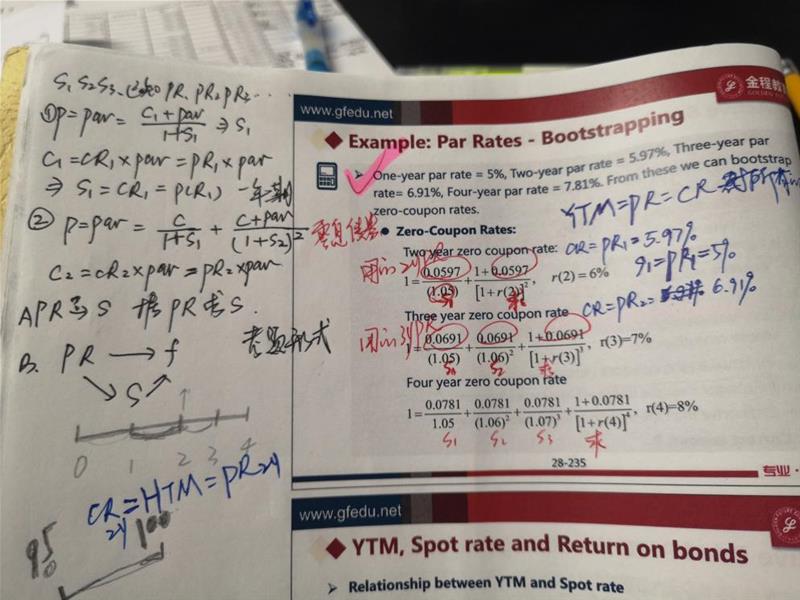 S₁ S₂ S₃、已知 PR₁ PR₂ PR₃ …
① P = par = \frac{C₁ + par}{1+S₁} ⇒ S₁
C₁ = CR₁ × par = PR₁ × par
⇒ S₁ = CR₁ = PR₁) 一年期
② P = par = \frac{C}{1+S₁} + \frac{C+par}{(1+S₂)²}
C₂ = CR₂ × par = PR₂ × par
A PR → S 拿 PR 求 S.
B. PR → f 考题形式
S
0 1 2 3 4
CR = YTM = PR 2y
2y
100
95
金程教
www.gfedu.net
Example: Par Rates - Bootstrapping
One-year par rate = 5%, Two-year par rate = 5.97%, Three-year par
rate= 6.91%, Four-year par rate = 7.81%. From these we can bootstrap
zero-coupon rates.
YTM = PR = CR
零息债券
Zero-Coupon Rates:
Two year zero coupon rate:
CR = PR₂ = 5.97%
S₁ = PR₁ = 5%
用的 2y PR
1 = \frac{0.0597}{(1.05)} + \frac{1+0.0597}{[1+r(2)]²}, r(2)=6%
S₁ 求
Three year zero coupon rate
CR = PR₂ = 6.91%
用的 3y PR
1 = \frac{0.0691}{(1.05)} + \frac{0.0691}{(1.06)²} + \frac{1+0.0691}{[1+r(3)]³}, r(3)=7%
S₁ S₂ 求
Four year zero coupon rate
1 = \frac{0.0781}{1.05} + \frac{0.0781}{(1.06)²} + \frac{0.0781}{(1.07)³} + \frac{1+0.0781}{[1+r(4)]⁴}, r(4)=8%
S₁ S₂ S₃ 求
28-235
专业·
www.gfedu.net
YTM, Spot rate and Return on bonds
Relationship between YTM and Spot rate